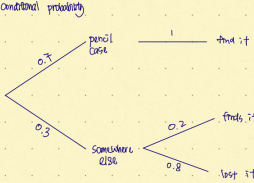 conditional probability
pencil case
1
find it
0.7
0.3
somewhere else
0.2
finds it
0.8
lost it